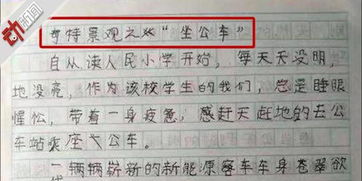 动新闻
奇特景观之"坐公车"
自从读人民小学开始，每天天没明，
地没亮，作为该校学生的我们，总是睡眼
惺忪，带着一身疲惫，感赶天赶地的去公
车站乘座公车。
一辆辆崭新的新能原客车车身苍翠欲